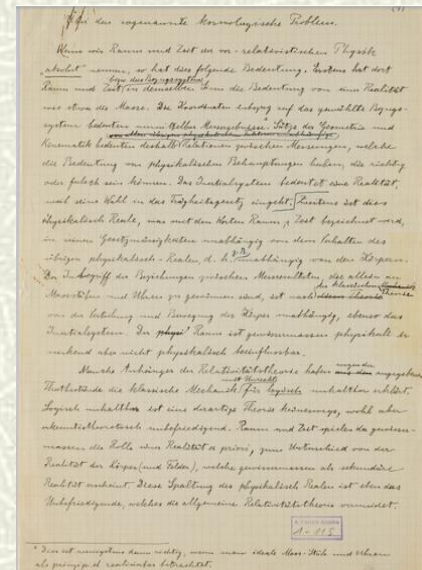 (1)
Über das sogenannte kosmologische Problem.
Wenn wir Raum und Zeit in der vor-relativistischen Physik
"absolut" nennen, so hat dies folgende Bedeutung. Erstens hat dort
bezw. das Bezugssystem
Raum und Zeit in demselben Sinn die Bedeutung von einer Realität
wie etwa die Masse. Die Koordinaten inbezug auf das gewählte Bezugs-
system bedeuten unmittelbar Messergebnisse.* Sätze der Geometrie und
Kinematik bedeuten deshalb Relationen zwischen Messungen, welche
die Bedeutung von physikalischen Behauptungen haben, die richtig
oder falsch sein können. Das Inertialsystem bedeutet eine Realität,
weil seine Wahl in das Trägheitsgesetz eingeht. Zweitens ist dies
Physikalisch-Reale, was mit den Worten Raum, Zeit bezeichnet wird,
in seinen Gesetzmässigkeiten unabhängig von dem Verhalten des
übrigen physikalisch-Realen, d. h. z.B. unabhängig von den Körpern.
Der Inbegriff der Beziehungen zwischen Messresultaten, die allein an
Massstäben und Uhren zu gewinnen sind, ist nach
der klassischen Theorie
von der Verteilung und Bewegung der Körper unabhängig, ebenso das
Inertialsystem. Der Raum ist gewissermassen physikalisch
wirkend aber nicht physikalisch beeinflussbar.
Manche Anhänger der Relativitätstheorie haben angegebenen
mit Unrecht
Thatbestände die klassische Mechanik für logisch unhaltbar erklärt.
Logisch unhaltbar ist eine derartige Theorie keineswegs, wohl aber
erkenntnistheoretisch unbefriedigend. Raum und Zeit spielen da gewisser-
massen die Rolle einer Realität a priori, zum Unterschied von der
Realität der Körper (und Felder), welche gewissermassen als sekundäre
Realität erscheint. Diese Spaltung des physikalisch Realen ist eben das
Unbefriedigende, welches die allgemeine Relativitätstheorie vermeidet.
1-115
* Dies ist wenigstens dann richtig, wenn man ideale Mess-Stäbe und Uhren
als prinzipiell realisierbar betrachtet.